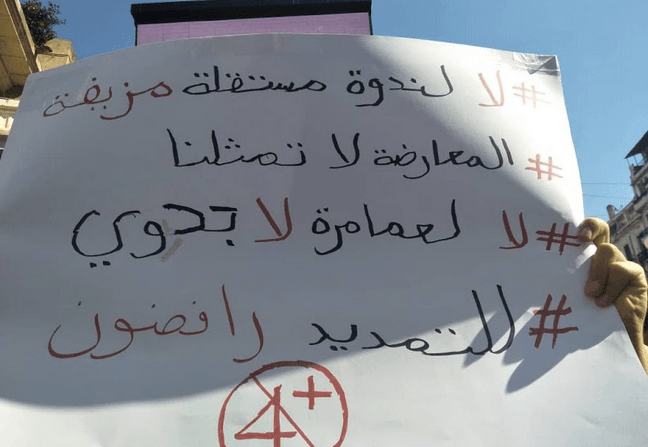 #لا لندوة مستقلة مزيفة
#المعارضة لا تمثلنا
#لا لعمامرة لا بدوي
#للتمديد رافضون
4+